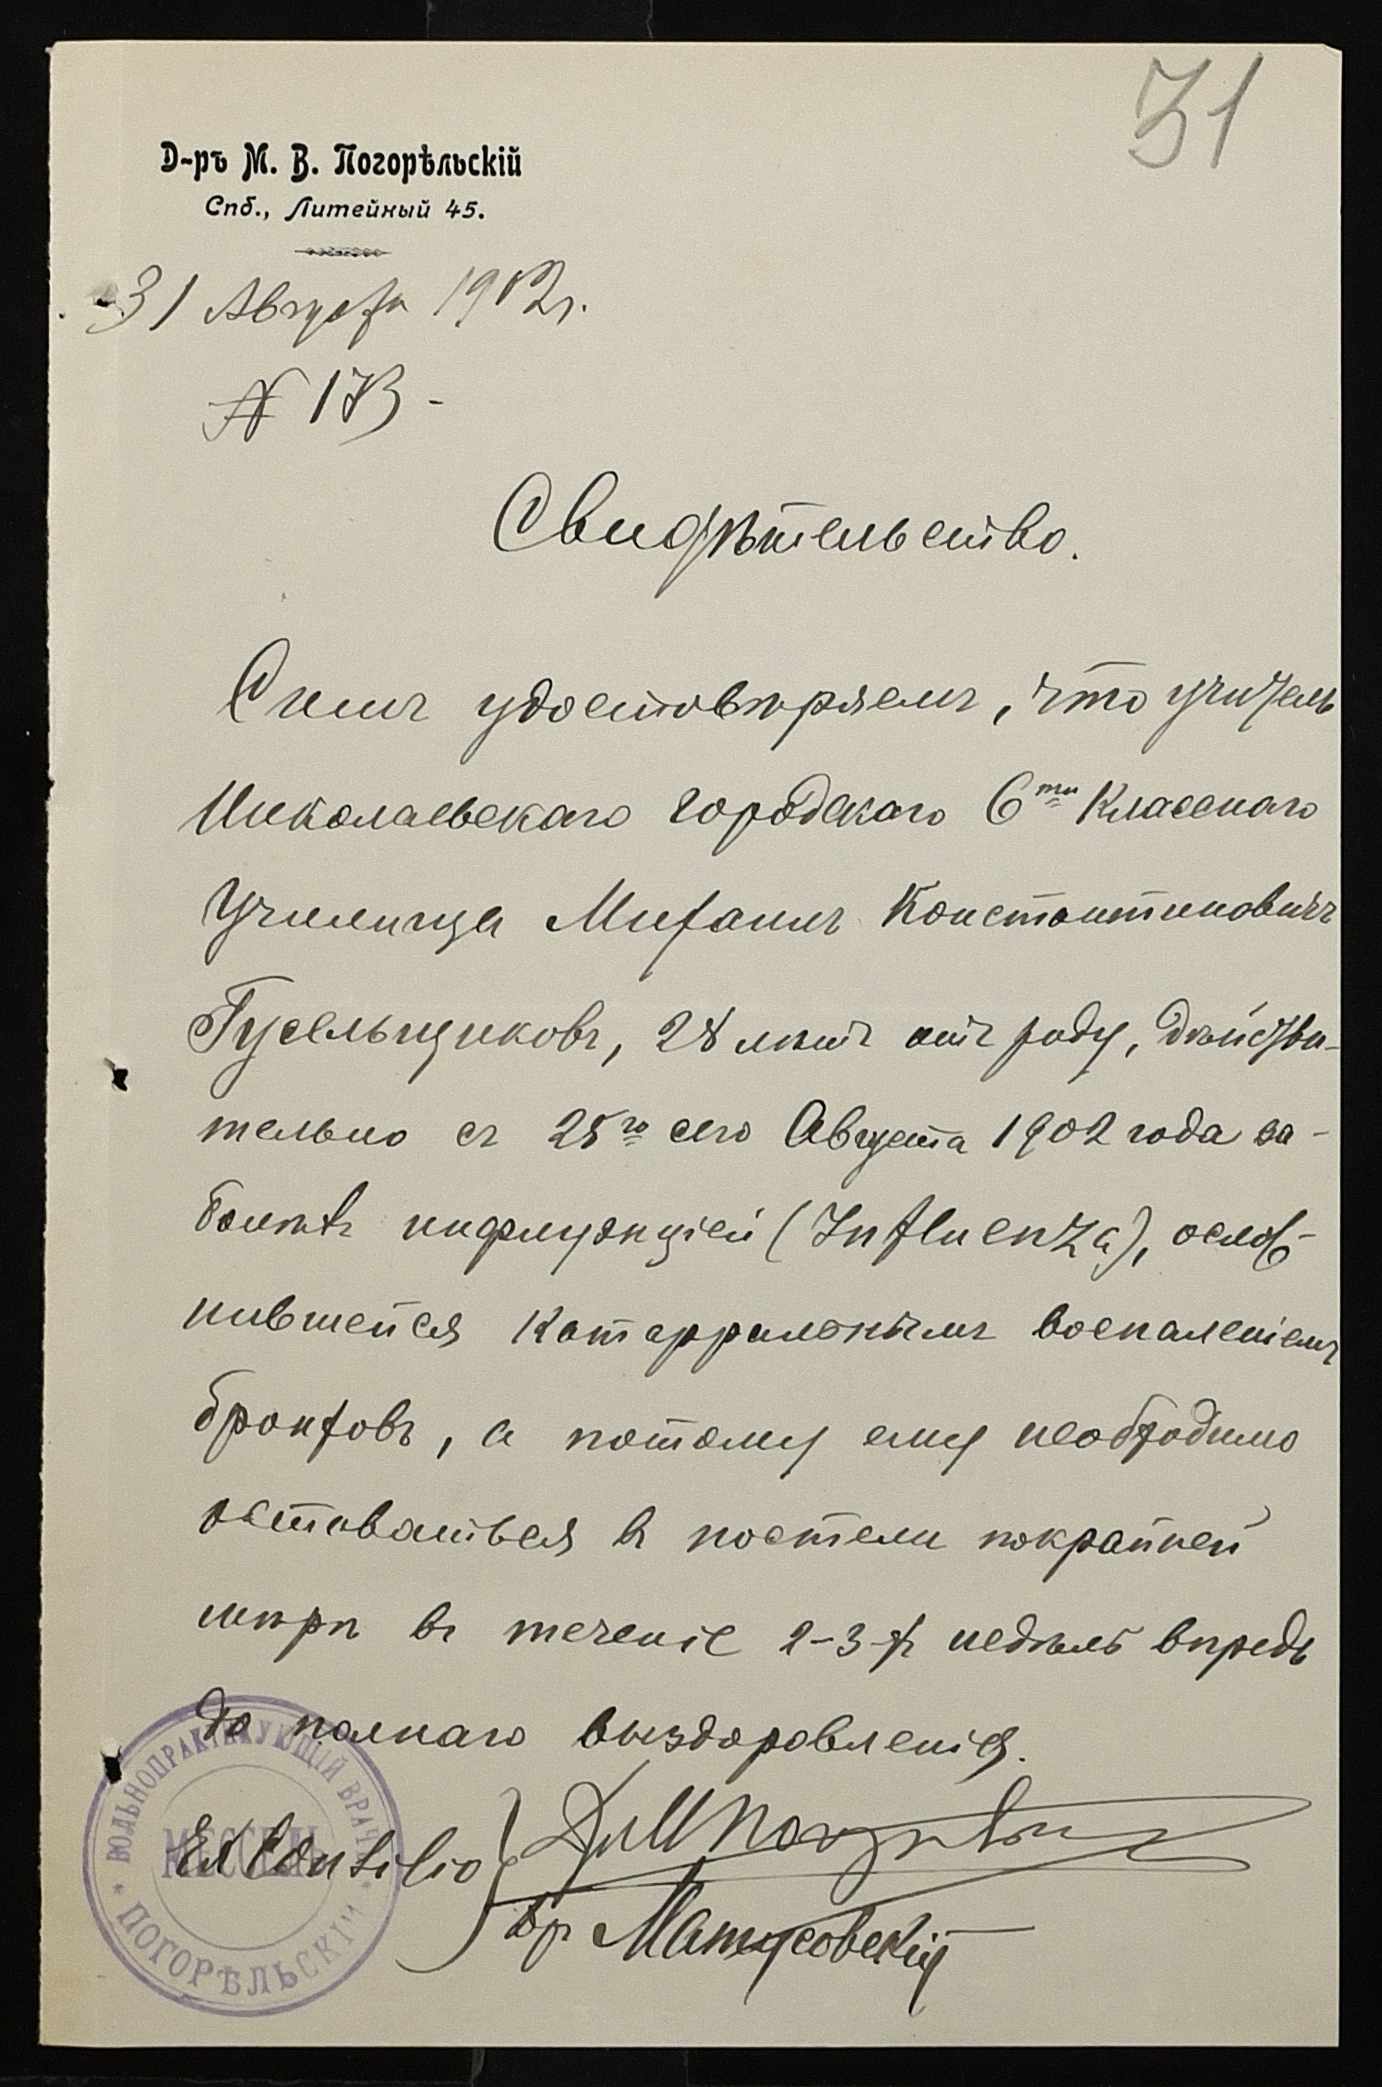 31
Д-ръ М. В. Погорѣльскій
Спб., Литейный 45.
31 Августа 1902 г.
№ 173 -
Свидѣтельство.
Симъ удостовѣряемъ, что учитель
Николаевскаго городскаго 6ти Класснаго
Училища Михаилъ Константиновичъ
Гусельщиковъ, 28 лѣтъ отъ роду, дѣйстви-
тельно съ 25го сего Августа 1902 года за-
болѣлъ инфлуэнціей (Influenza), ослож-
нившейся катарральнымъ воспаленіемъ
бронховъ, а потому ему необходимо
оставаться въ постели покрайней
мѣрѣ въ теченіе 2-3-хъ недѣль впредь
до полнаго выздоровленія.
Ex Consilio } Д-ръ М Погорѣльскій
Вр. Матусовскій
ВОЛЬНОПРАКТИКУЮЩІЙ ВРАЧЪ
МЕССЕЛЬ
ПОГОРѢЛЬСКІЙ